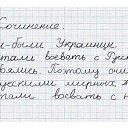 Сочинение.
и-были Украинцы.
тали воевать с Руск
боялись. Поэтому они
рускими мирных ж
тали воевать с н